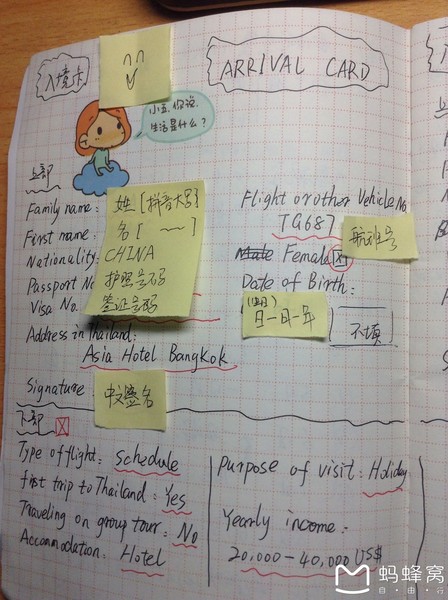 入境卡
ARRIVAL CARD
小五，你说，
生活是什么？
上部
Family name: 姓[拼音大写]
First name: 名[ ～ ]
Nationality: CHINA
Passport No 护照号码
Visa No. 签证号码
Flight or other Vehicle No.
TG687 航班号
Male Female ☒
Date of Birth:
日-月-年
不填
Address in Thailand:
Asia Hotel Bangkok
Signature: 中文签名
下部
Type of flight: Schedule
first trip to Thailand: Yes
Traveling on group tour: No
Accommodation: Hotel
Purpose of visit: Holiday
Yearly income:
20,000-40,000 US$
蚂蜂窝
自由行